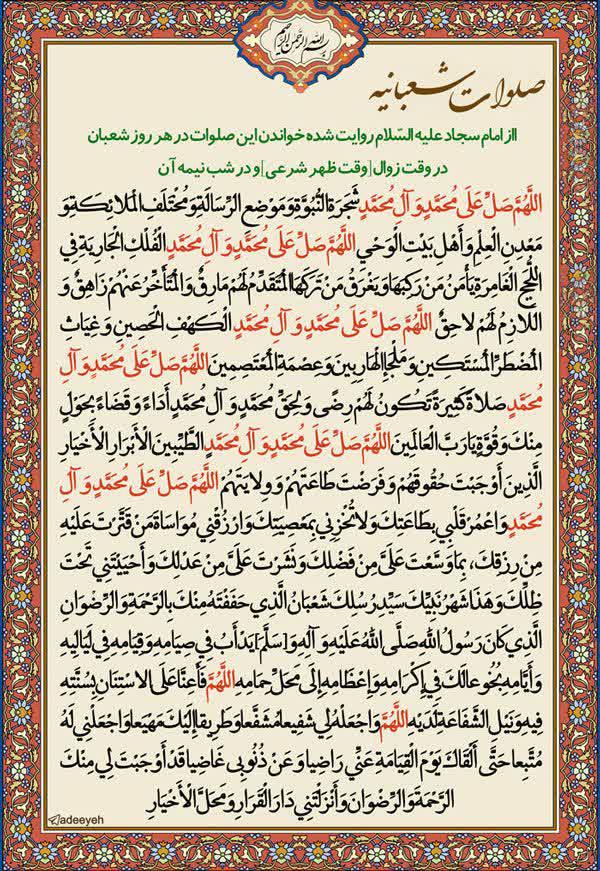 بسم الله الرحمن الرحیم
صلوات شعبانیه
از امام سجاد علیه السّلام روایت شده خواندن این صلوات در هر روز شعبان
در وقت زوال [وقت ظهر شرعی] و در شب نیمه آن
اللَّهُمَّ صَلِّ عَلَى مُحَمَّدٍ وَ آلِ مُحَمَّدٍ شَجَرَةِ النُّبُوَّةِ وَ مَوْضِعِ الرِّسَالَةِ وَ مُخْتَلَفِ الْمَلائِكَةِ وَ
مَعْدِنِ الْعِلْمِ وَ أَهْلِ بَيْتِ الْوَحْيِ اللَّهُمَّ صَلِّ عَلَى مُحَمَّدٍ وَ آلِ مُحَمَّدٍ الْفُلْكِ الْجَارِيَةِ فِي
اللُّجَجِ الْغَامِرَةِ يَأْمَنُ مَنْ رَكِبَهَا وَ يَغْرَقُ مَنْ تَرَكَهَا الْمُتَقَدِّمُ لَهُمْ مَارِقٌ وَ الْمُتَأَخِّرُ عَنْهُمْ زَاهِقٌ وَ
اللازِمُ لَهُمْ لاحِقٌ اللَّهُمَّ صَلِّ عَلَى مُحَمَّدٍ وَ آلِ مُحَمَّدٍ الْكَهْفِ الْحَصِينِ وَ غِيَاثِ
الْمُضْطَرِّ الْمُسْتَكِينِ وَ مَلْجَإِ الْهَارِبِينَ وَ عِصْمَةِ الْمُعْتَصِمِينَ اللَّهُمَّ صَلِّ عَلَى مُحَمَّدٍ وَ آلِ
مُحَمَّدٍ صَلاةً كَثِيرَةً تَكُونُ لَهُمْ رِضًى وَ لِحَقِّ مُحَمَّدٍ وَ آلِ مُحَمَّدٍ أَدَاءً وَ قَضَاءً بِحَوْلٍ
مِنْكَ وَ قُوَّةٍ يَا رَبَّ الْعَالَمِينَ اللَّهُمَّ صَلِّ عَلَى مُحَمَّدٍ وَ آلِ مُحَمَّدٍ الطَّيِّبِينَ الْأَبْرَارِ الْأَخْيَارِ
الَّذِينَ أَوْجَبْتَ حُقُوقَهُمْ وَ فَرَضْتَ طَاعَتَهُمْ وَ وِلايَتَهُمْ اللَّهُمَّ صَلِّ عَلَى مُحَمَّدٍ وَ آلِ
مُحَمَّدٍ وَ اعْمُرْ قَلْبِي بِطَاعَتِكَ وَ لا تُخْزِنِي بِمَعْصِيَتِكَ وَ ارْزُقْنِي مُوَاسَاةَ مَنْ قَتَّرْتَ عَلَيْهِ
مِنْ رِزْقِكَ، بِمَا وَسَّعْتَ عَلَيَّ مِنْ فَضْلِكَ وَ نَشَرْتَ عَلَيَّ مِنْ عَدْلِكَ وَ أَحْيَيْتَنِي تَحْتَ
ظِلِّكَ وَ هَذَا شَهْرُ نَبِيِّكَ سَيِّدِ رُسُلِكَ شَعْبَانُ الَّذِي حَفَفْتَهُ مِنْكَ بِالرَّحْمَةِ وَ الرِّضْوَانِ
الَّذِي كَانَ رَسُولُ اللهِ صَلَّى اللهُ عَلَيْهِ وَ آلِهِ وَ [سَلَّمَ] يَدْأَبُ فِي صِيَامِهِ وَ قِيَامِهِ فِي لَيَالِيهِ
وَ أَيَّامِهِ بُخُوعا لَكَ فِي إِكْرَامِهِ وَ إِعْظَامِهِ إِلَى مَحَلِّ حِمَامِهِ اللَّهُمَّ فَأَعِنَّا عَلَى الاسْتِنَانِ بِسُنَّتِهِ
فِيهِ وَ نَيْلِ الشَّفَاعَةِ لَدَيْهِ اللَّهُمَّ وَ اجْعَلْهُ لِي شَفِيعا مُشَفَّعا وَ طَرِيقا إِلَيْكَ مَهْيَعا وَ اجْعَلْنِي لَهُ
مُتَّبِعا حَتَّى أَلْقَاكَ يَوْمَ الْقِيَامَةِ عَنِّي رَاضِيا وَ عَنْ ذُنُوبِى غَاضِيا قَدْ أَوْجَبْتَ لِي مِنْكَ
الرَّحْمَةَ وَ الرِّضْوَانَ وَ أَنْزَلْتَنِي دَارَ الْقَرَارِ وَ مَحَلَّ الْأَخْيَارِ
adeeyeh